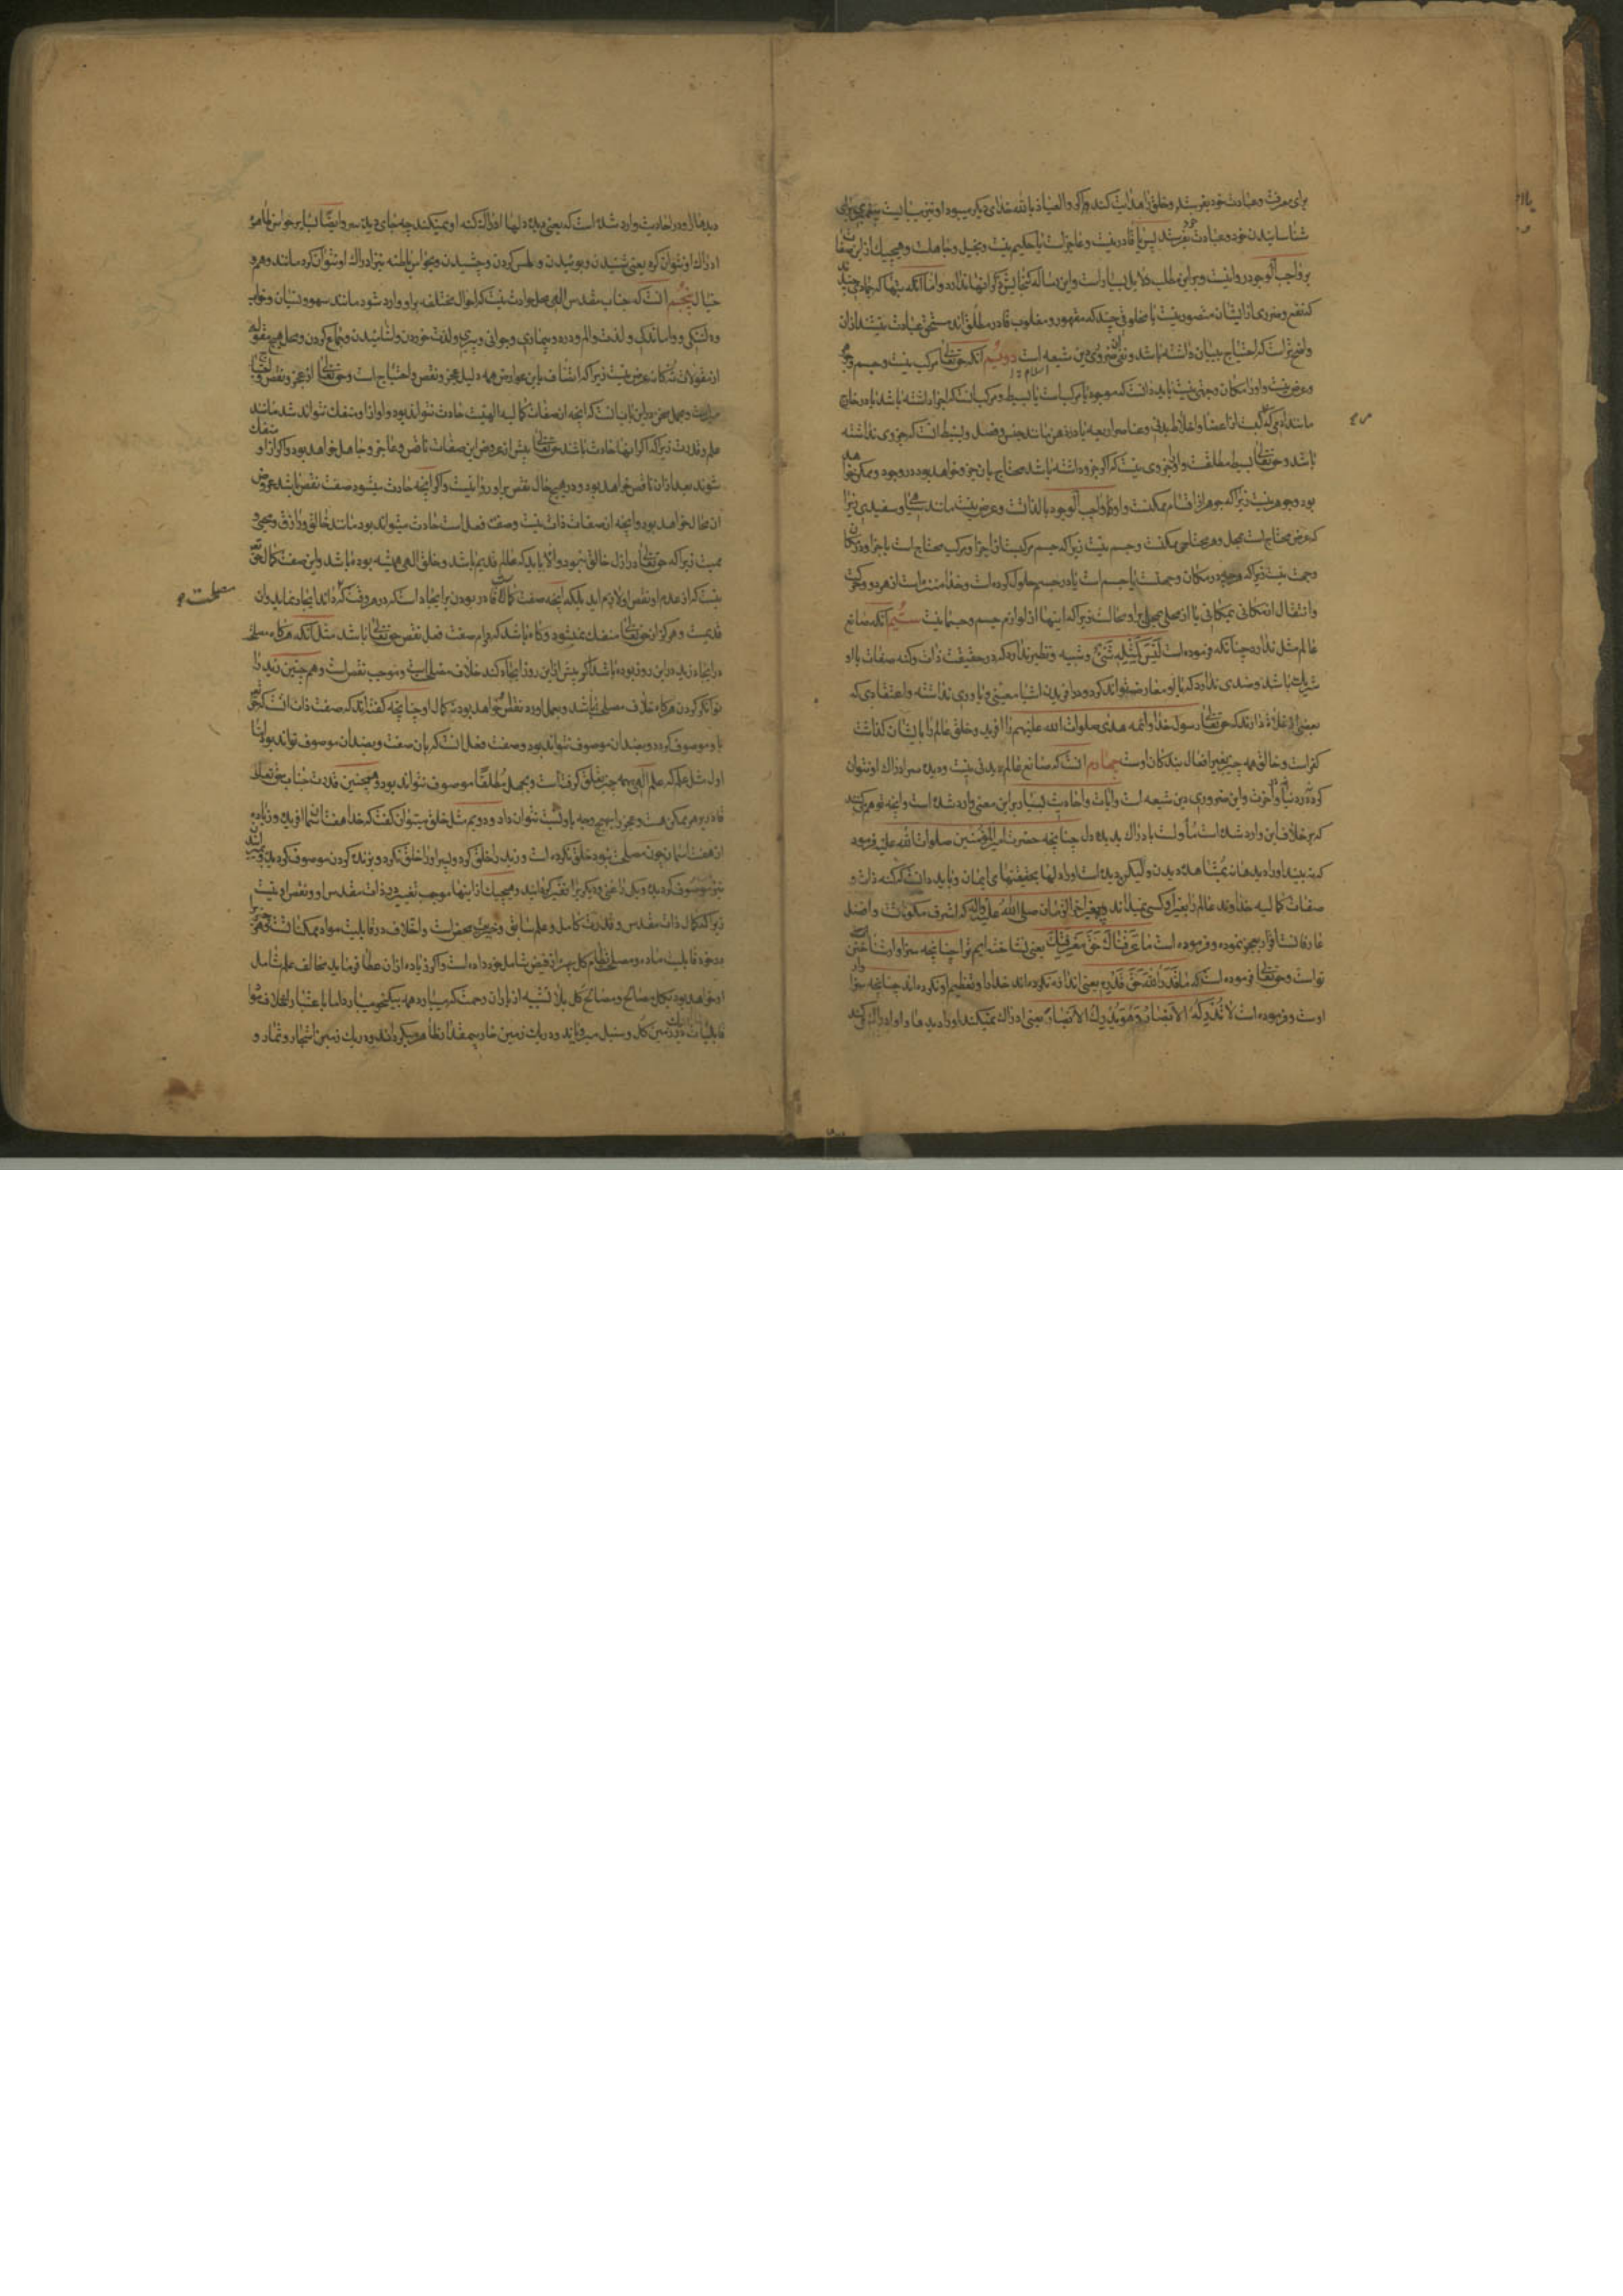 برای معرفت و عبادت خود بفرستد و خلق را هدایت کند و اگر والعیاذ بالله خدای دیکر میبود او نیز میبایست پیغمبری برای
شناسانیدن خود و عبادت خود بفرستد پس یا قادر نیست و عاجز است یا حکیم نیست و بخیل و جاهلست و هیچیک ازین صفات
بر واجب الوجود روا نیست و برین مطلب دلایل بسیار است و این رساله کنجایش ذکر آنها ندارد و اما آنکه بتها که جمادی چندند
که نفع و ضرری ازایشان متصور نیست یا مخلوقی چند که مقهور و مغلوب قادر مطلق‌اند مستحق عبادت نیستند ازان
واضح‌تر است که احتیاج به بیان داشته باشد و نفی آن ضروری دین شیعه است دویم آنکه حق تعالی مرکب نیست و جسم و جوهر
و عرض نیست و او را مکان و جهتی نیست باید دانست که موجود یا مرکب است یا بسیط و مرکب آنست که اجزا داشته باشد یا در خارج
مانند آدمی که مرکبست از اعضا و اخلاط بدنی و عناصر اربعه یا در ذهن مانند جنس و فصل و بسیط آنست که جزوی نداشته
باشد و حق تعالی بسیط مطلقست و او را جزوی نیست که اگر جزو داشته باشد محتاج بان جزو خواهد بود در وجود و ممکن خواهد
بود و جوهر نیست زیرا که جوهر از اقسام ممکنست و او واجب الوجود بالذاتست و عرض نیست مانند سیاهی و سفیدی زیرا
که عرض محتاج است بمحل و هر محتاجی ممکنست و جسم نیست زیرا که جسم مرکبست از اجزا و مرکب محتاج است باجزا و در مکان
و جهت نیست زیرا که هرچه در مکان و جهتست یا جسم است یا در جسم حلول کرده است و خدا منزه است از هر دو و حرکت
و انتقال از مکانی بمکانی یا از محلی بمحلی بر او محالست زیرا که اینها از لوازم جسم و جسمانیست سیم آنکه صانع
عالم مثل ندارد چنانکه فرموده است لَیْسَ کَمِثْلِهِ شَیْءٌ و شبیه و نظیر ندارد که در حقیقت ذات و کنه صفات با او
شریک باشد و ضدی ندارد که با او معارضه تواند کرد و در آفریدن اشیا معینی و یاوری نداشته و اعتقادی که
بعضی از غلاة دارند که حق تعالی رسول خدا و ائمه هدی صلوات الله علیهم را آفرید و خلق عالم را بایشان کذاشت
کفر است و خالق همه چیز بغیر افعال بندکان اوست چهارم آنست که صانع عالم دیدنی نیست و بدیدهٔ سر ادراک او نتوان
کرد نه در دنیا و نه در آخرت و این ضروری دین شیعه است و آیات و احادیث بسیار بر این معنی وارد شده است و آنچه توهم میکنند
که بر خلاف این وارد شده است مأول است بادراک بدیدهٔ دل چنانچه حضرت امیر المؤمنین صلوات الله علیه فرموده
که ندیده‌اند او را دیدها بمشاهدهٔ دیدن و لیکن دیده است او را دلها بحقیقتهای ایمان و باید دانست که کنه ذات و
صفات کمالیه خداوند عالم را بغیر او کسی نمیداند و پیغمبر آخر الزمان صلی الله علیه و آله که اشرف مکونات و افضل
عارفانست اقرار بعجز نموده و فرموده است مَا عَرَفْنَاكَ حَقَّ مَعْرِفَتِكَ یعنی نشناخته‌ایم ترا چنانچه سزاوار شناختن
تو است و حق تعالی فرموده است که مَا قَدَرُوا اللهَ حَقَّ قَدْرِهِ یعنی اندازه نکرده‌اند خدا را و تعظیم او نکرده‌اند چنانچه سزاوار
اوست و فرموده است لَا تُدْرِكُهُ الْأَبْصَارُ وَهُوَ يُدْرِكُ الْأَبْصَارَ یعنی ادراک نمیکند او را دیدها و او ادراک میکند
دیدها را و در احادیث وارد شده است که یعنی دیدهٔ دلها ادراک کنه او نمیکند چه جای دیدهٔ سر و ایضا بسایر حواس ظاهره
ادراک او نتوان کرد یعنی شنیدن و بوئیدن و لمس کردن و چشیدن و بحواس باطنه نیز ادراک او نتوان کرد مانند وهم و
خیال پنجم آنست که جناب مقدس الهی محل حوادث نیست که احوال مختلفه بر او وارد شود مانند سهو و نسیان و خواب
و دلتنکی و واماندکی و لذت و الم و درد و بیماری و جوانی و پیری و لذت خوردن و آشامیدن و جماع کردن و محل هیچ مقوله
از مقولات عرض نیست زیرا که اتصاف باین عوارض همه دلیل عجز و نقص و احتیاج است و حق تعالی از عجز و نقص و احتیاج
مبراست و مجمل سخن در این باب آنست که آنچه از صفات کمالیه الهیست حادث نتواند بود و او از او منفک نتواند شد مانند
علم و قدرت زیرا که اکر اینها حادث باشد حق تعالی پیش از عروض این صفات ناقص و عاجز و جاهل خواهد بود و اکر از او منفک
شوند بعد ازان ناقص خواهد بود و در هیچ حال نقص بر او روا نیست و اکر آنچه حادث میشود صفت نقص باشد عروض
آن محال خواهد بود و آنچه از صفات ذات نیست و صفت فعل است حادث میتواند بود مانند خالق و رازق و محیی و
ممیت زیرا که حق تعالی در ازل خالق نبود و الا باید که عالم قدیم باشد و خلق الهی همیشه بوده باشد و این صفت کمال حق تعالی
نیست که از عدم او نقص او لازم آید بلکه آنچه صفت کمال است قادر بودن بر ایجاد است که در هر وقت که داند ایجاد نماید و آن
قدیمست و هرکز از حق تعالی منفک نمیشود و کاه باشد که دوام صفت فعل نقص حق تعالی باشد مثل آنکه هرکاه مصلحت
در ایجاد زید در این روز بوده باشد اکر پیش از این روز ایجاد کند خلاف مصلحت است و موجب نقص است و هم چنین زید را
توانکر کردن هرکاه خلاف مصلحت باشد و بعمل آورد نقص خواهد بود نه کمال او چنانچه کفته‌اند که صفت ذات آنست که حق تعالی
باو موصوف کردد و بضد آن موصوف نتواند بود و صفت فعل آنست که بآن صفت و بضد آن موصوف تواند بود اما
اول مثل علم که علم الهی بهمه چیز تعلق کرفته است و بجهل مطلقا موصوف نتواند بود و همچنین قدرت جناب حق تعالی
قادر بر هر ممکن هست و عجز را بهیچ وجه باو نسبت نتوان داد و دویم مثل خلق میتوان کفت که خدا هفت آسمان آفریده و زیاده
از هفت آسمان چون مصلحت نبود خلق نکرده است و زید را خلق کرد و پسر او را خلق نکرد و بزنده کردن موصوف کردیده و بمیرانیدن
نیز موصوف کردیده و یکی را غنی و دیکری را فقیر کردانید و هیچیک از اینها موجب تغییر در ذات مقدس او و نقص او نیست
زیرا که کمال ذات مقدس و قدرت کامل و علم سابق و خیریت محض است و اختلاف در قابلیت مواد ممکناتست و هر چیز
در خور قابلیت ماده و مصلحت نظام کل بهره از فیض شامل خود داده است و اکر زیاده از آن عطا فرماید مخالف علم شامل
او خواهد بود بکل مصالح و مصالح کل بلا تشبیه از باران رحمت که میبارد همه بیک نحو میبارد اما باعتبار اختلاف مواد
قابلیات در یک زمین کل و سنبل میرویاند و در یک زمین خار بیمقدار ظاهر میکرداند و در یک زمین اشجار و ثمار و
مصلحت